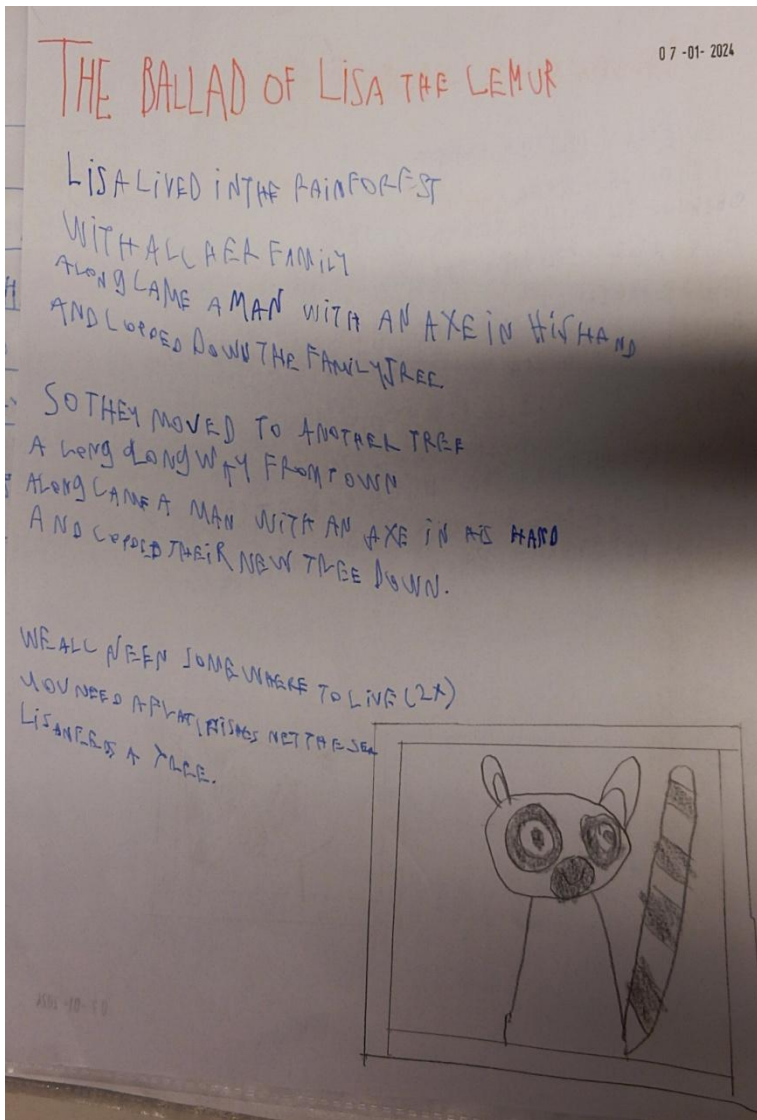 07-01-2024
THE BALLAD OF LISA THE LEMUR
LISA LIVED IN THE RAINFOREST
WITH ALL HER FAMILY
ALONG CAME A MAN WITH AN AXE IN HIS HAND
AND LOPPED DOWN THE FAMILY TREE.
SO THEY MOVED TO ANOTHER TREE
A LONG LONG WAY FROM TOWN
ALONG CAME A MAN WITH AN AXE IN HIS HAND
AND LOPPED THEIR NEW TREE DOWN.
WE ALL NEEN SOMEWHERE TO LIVE (2X)
YOU NEED A FLAT, FISHES THE SEA
LISA NEEDS A TREE.